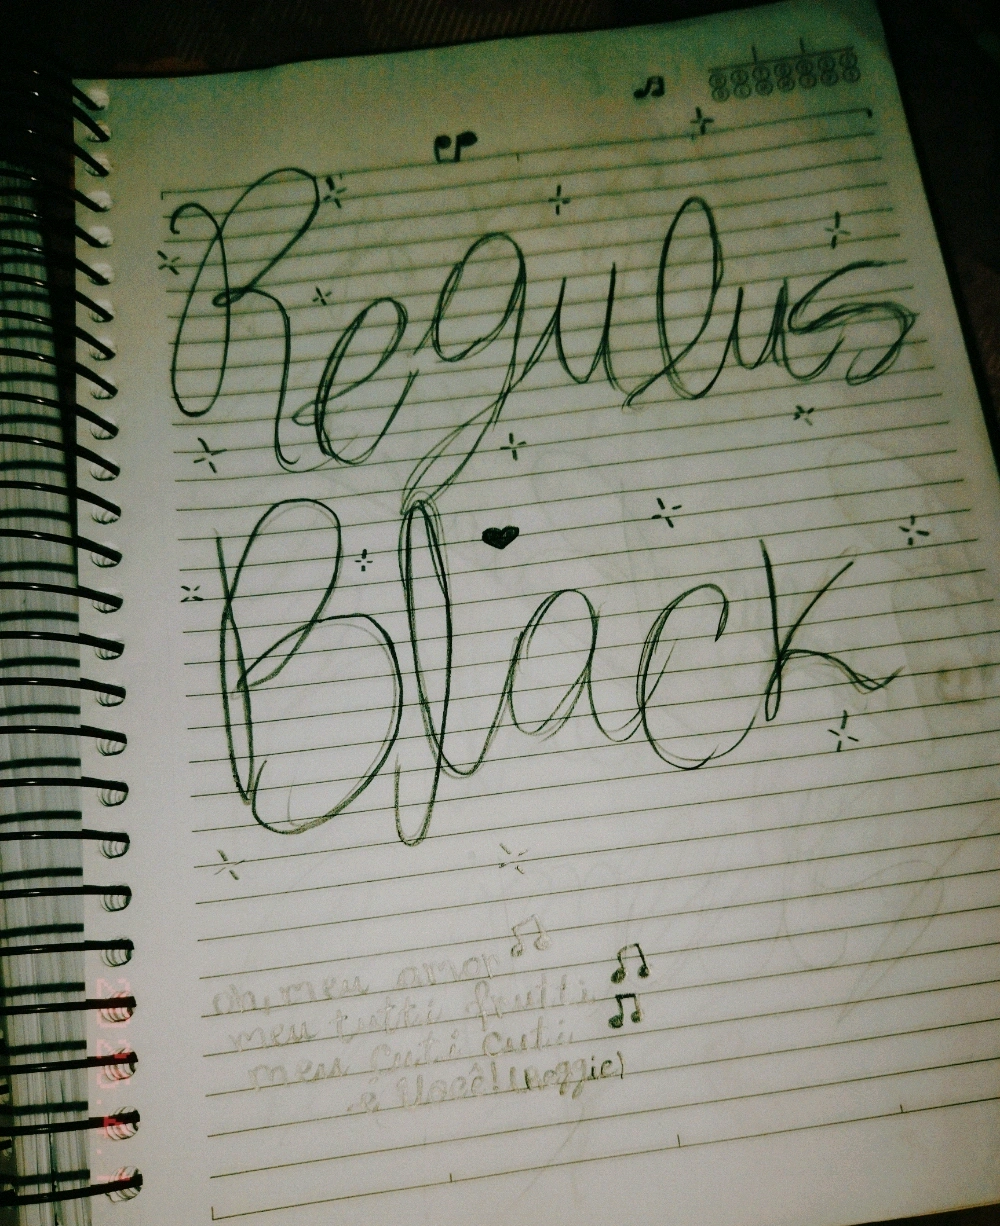 Regulus
Black
oh, meu amor
meu tutti frutti
meu cuti cuti
é você! (Maggie)